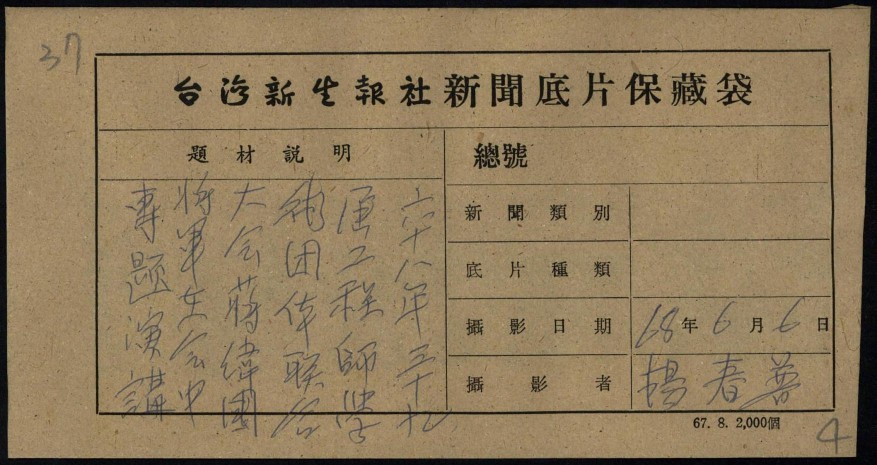 37
台湾新生報社新聞底片保藏袋
題材說明
六十八年三十九
届工程師學
術团体联合
大会蔣緯國
將軍在会中
專題演講
總號
新聞類別
底片種類
攝影日期 68年6月6日
攝影者 楊春
67. 8. 2,000個
4